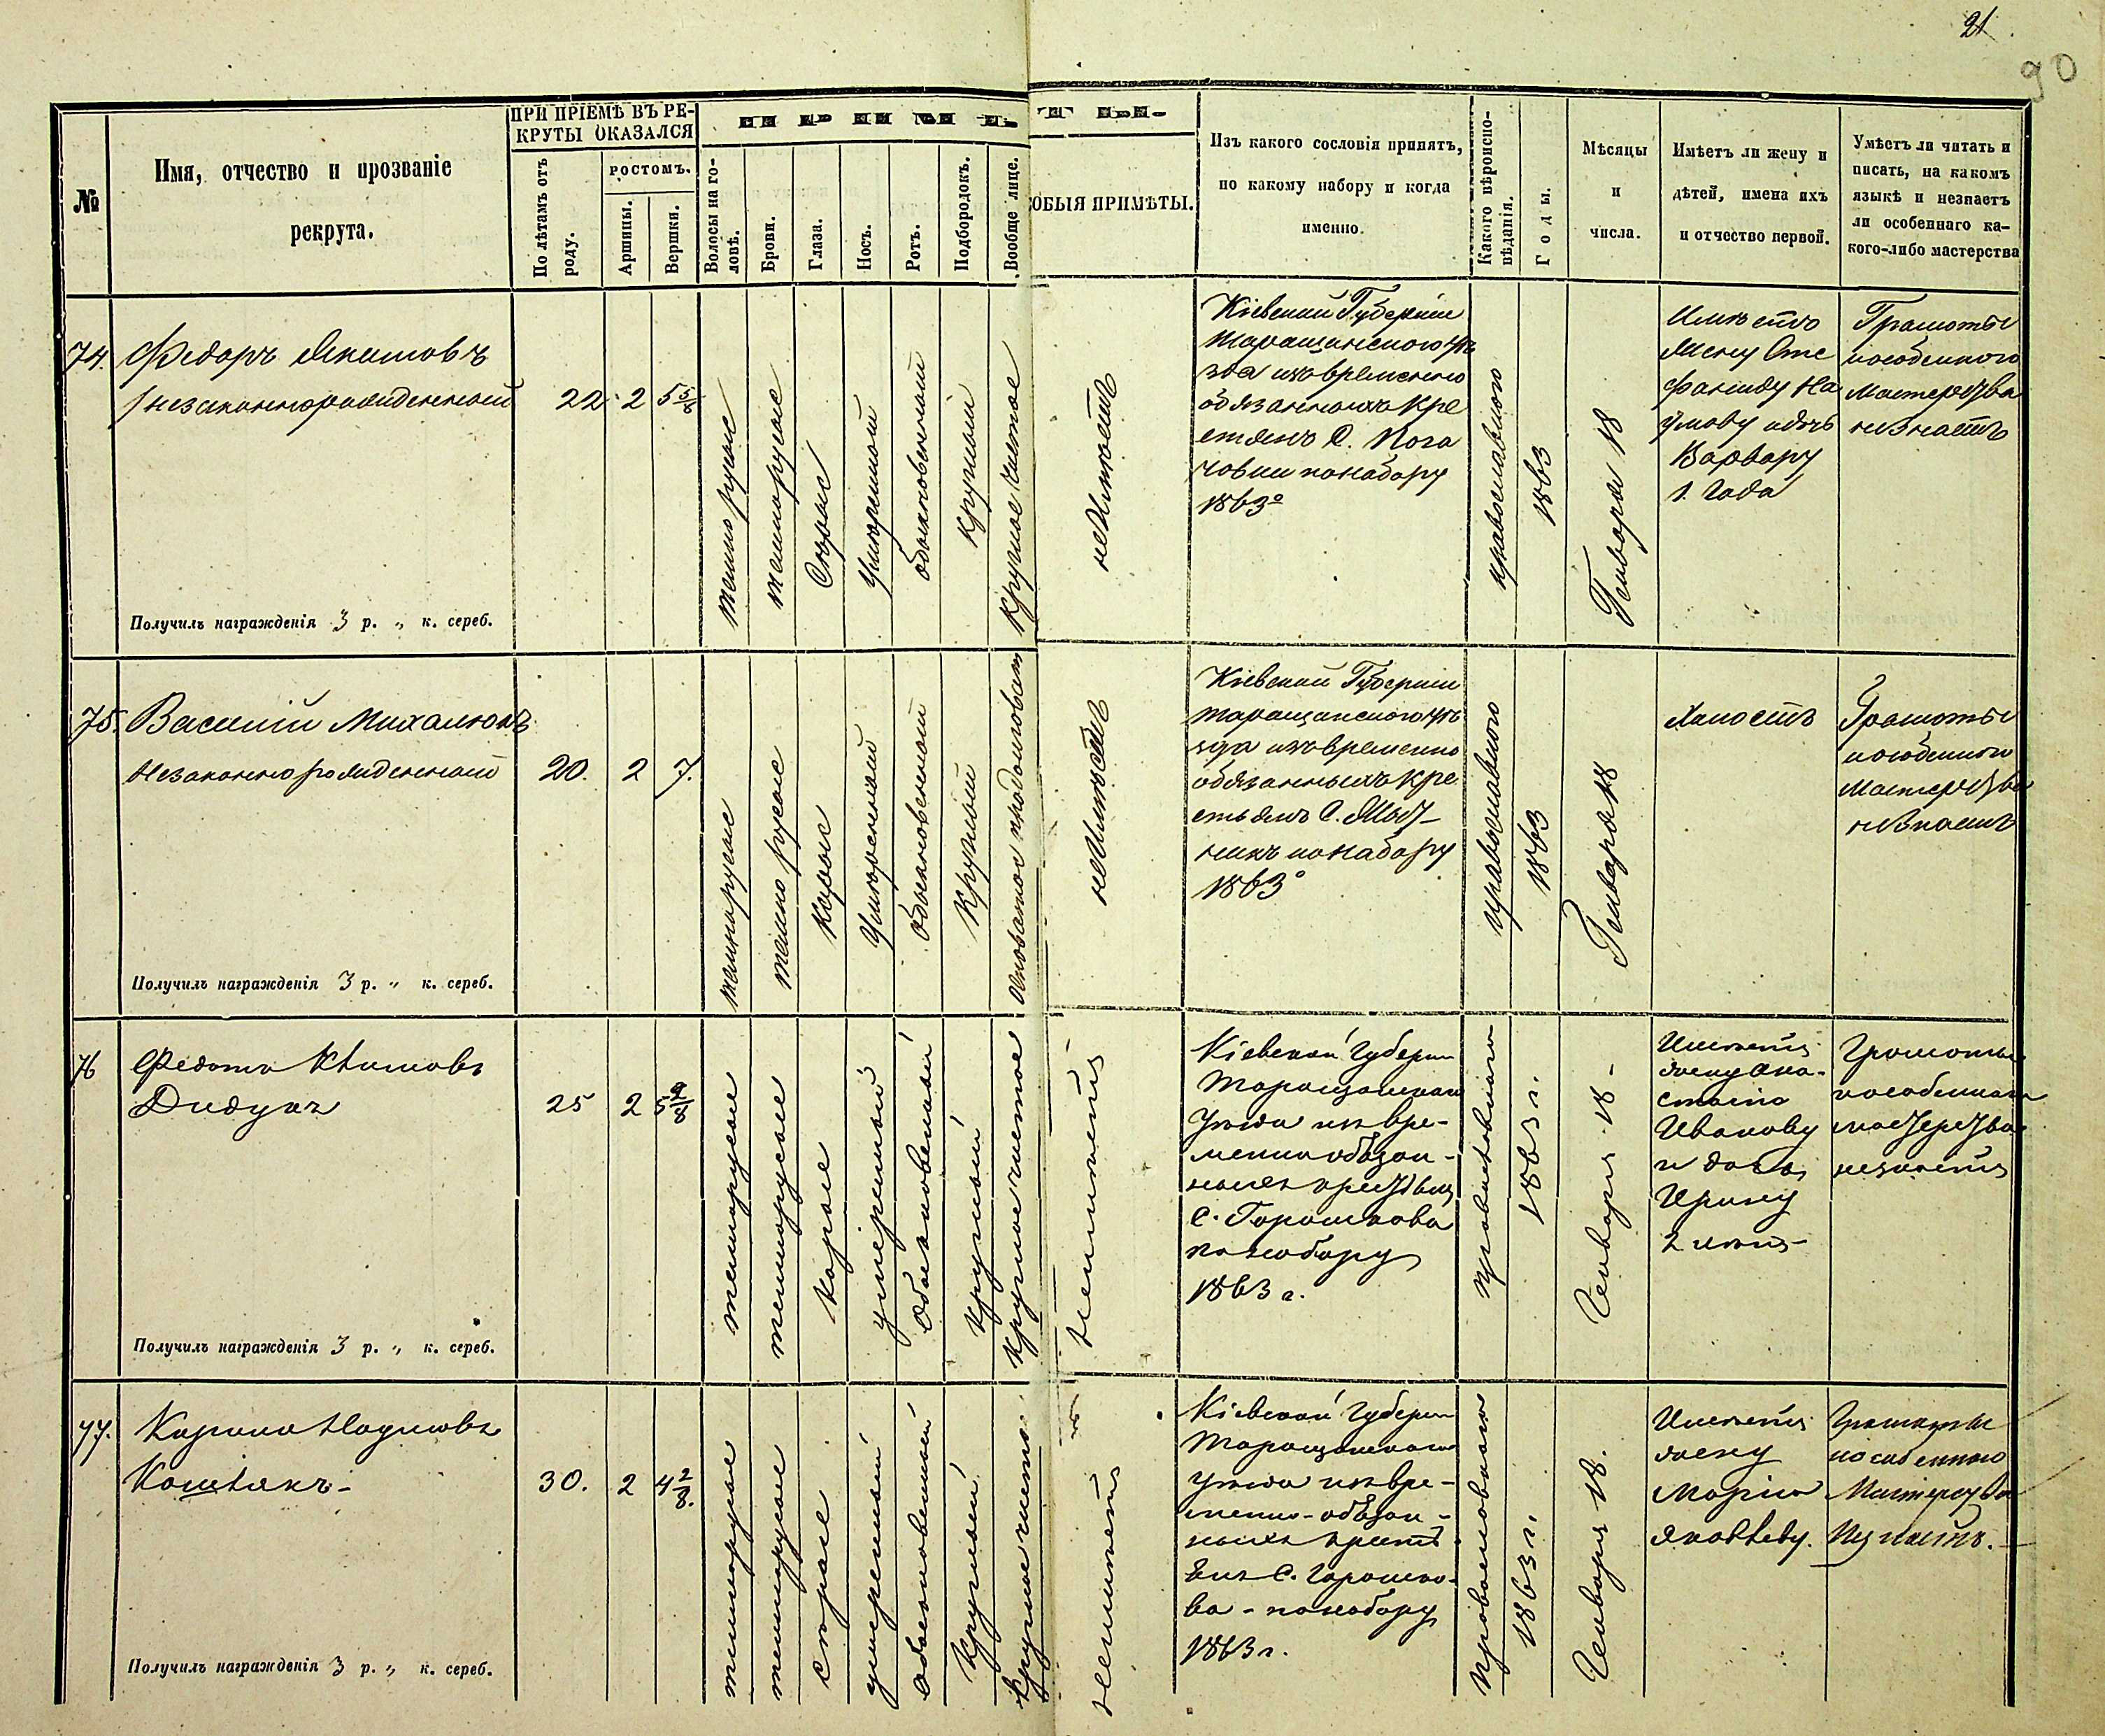 21
90
№
Имя, отчество и прозваніе
рекрута.
ПРИ ПРІЕМѢ ВЪ РЕ-
КРУТЫ ОКАЗАЛСЯ
По лѣтамъ отъ
роду.
ростомъ.
Аршины.
Вершки.
Волосы на го-
ловѣ.
Брови.
Глаза.
Носъ.
Ротъ.
Подбородокъ.
Вообще лице.
ОБЫЯ ПРИМѢТЫ.
Изъ какого сословія принятъ,
по какому набору и когда
именно.
Какого вѣроиспо-
вѣданія.
Годы.
Мѣсяцы
и
числа.
Имѣетъ ли жену и
дѣтей, имена ихъ
и отчество первой.
Умѣетъ ли читать и
писать, на какомъ
языкѣ и незнаетъ
ли особеннаго ка-
кого-либо мастерства
74.
Федоръ Якимовъ
незаконнорожденный
22
2
5 5/8
темнорусые
темнорусые
Сѣрые
Умѣренный
обыкновенный
круглый
круглое чистое
неимѣетъ
Кіевской Губерніи
Таращанского Уѣ
зда изъ временно
обязанныхъ кре
стьянъ С. Лога
човки по набору
1863º
православного
1863
Генваря 18
Имѣетъ
Жену Сте
фаниду На
умову и дочь
Варвару
1. Года
Грамоты
и особенного
мастерства
незнаетъ
Получилъ награжденія 3 р. „ к. сереб.
75.
Василій Михалюкъ
Незаконнорожденный
20.
2
7.
темнорусые
темнорусые
Карые
Умѣренный
обыкновенный
Круглый
неимѣетъ
Кіевской Губерніи
Таращанского Уѣ
зда изъ временно
обязанныхъ кре
стьянъ С.
никъ по набору
1863º
православного
1863
Генваря 18
Холостъ
Грамоты
и особенного
Мастерства
незнаетъ
Получилъ награжденія 3 р. „ к. сереб.
76
Федотъ Климовъ
Дидукъ
25
2
5 2/8
темнорусые
темнорусые
Карые
умѣренный
Обыкновенный
Круглый
Круглое чистое
неимѣетъ
Кіевской Губерніи
Таращанского
Уѣзда изъ вре-
менно обязан-
ныхъ крестьянъ
С. Горошкова
по набору
1863 г.
православного
1863 г.
Генваря 18 -
Имѣетъ
жену Ана-
стасію
Иванову
и дочь
Ирину
2 лѣтъ -
Грамоты
и особенного
мастерства
незнаетъ
Получилъ награжденія 3 р. „ к. сереб.
77.
Наумовъ
30.
2
4 2/8.
темнорусые
темнорусые
сѣрые
умѣренный
Обыкновенный
Круглый
Круглое чистое
неимѣетъ
Кіевской Губерніи
Таращанского
Уѣзда изъ вре-
менно-обязан-
ныхъ кресть
янъ С. Горошко-
ва - по набору
1863 г.
Православного
1863 г.
Генваря 18.
Имѣетъ
жену
Марію
Яковлеву.
Грамоты
и особенного
Мастерства
Незнаетъ.
Получилъ награжденія 3 р. „ к. сереб.